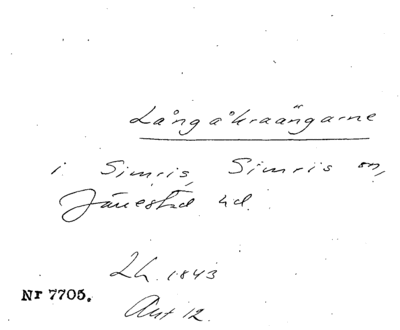 Långåkraängarne
i Simris, Simris sn,
Järrestad hd.
Lh. 1843
Nr 7705.
Akt 12.